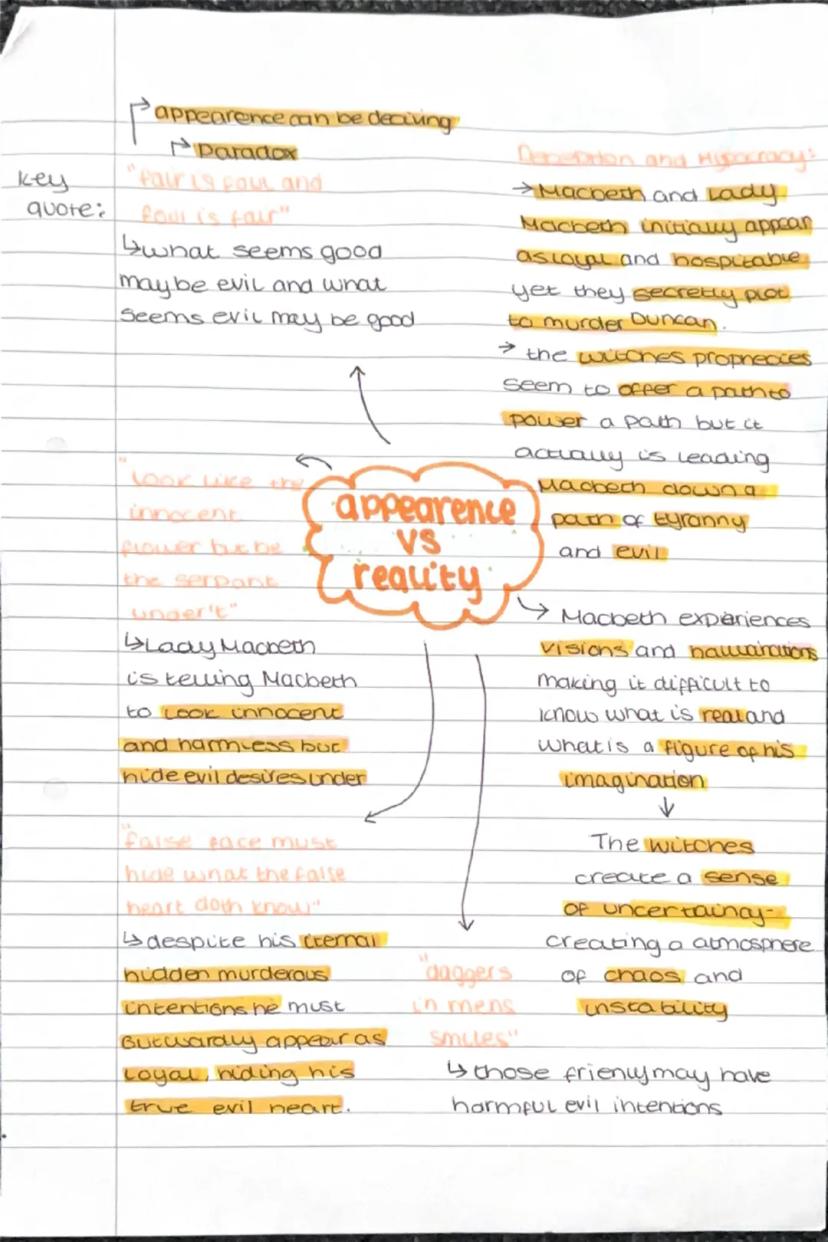 appearence can be deciving
Paradox
Key
quote:
"fair is foul and
foul is fair"
↳what seems good
maybe evil and what
seems evil may be good
Deception and Hypocracy:
→Macbeth and Lady
Macbeth initially appear
as loyal and hospitable
yet they secretly plot
to murder Duncan.
→ the witches prophecies
seem to offer a path to
power a path but it
actually is leading
Macbeth down a
path of tyranny
and evil
"look like the
innocent
flower but be
the serpant
under't"
↳Lady Macbeth
is telling Macbeth
to look innocent
and harmless but
hide evil desires under
appearence
vs
reality
Macbeth experiences
visions and hallucinations
making it difficult to
know what is real and
what is a figure of his
imagination
The witches
create a sense
of uncertainty-
creating a atmosphere
of chaos and
instability
"false face must
hide what the false
heart doth know"
↳despite his iternal
hidden murderous
intentions he must
outwardly appear as
loyal, hiding his
true evil heart.
"daggers
in mens
smiles"
↳those frienly may have
harmful evil intentions